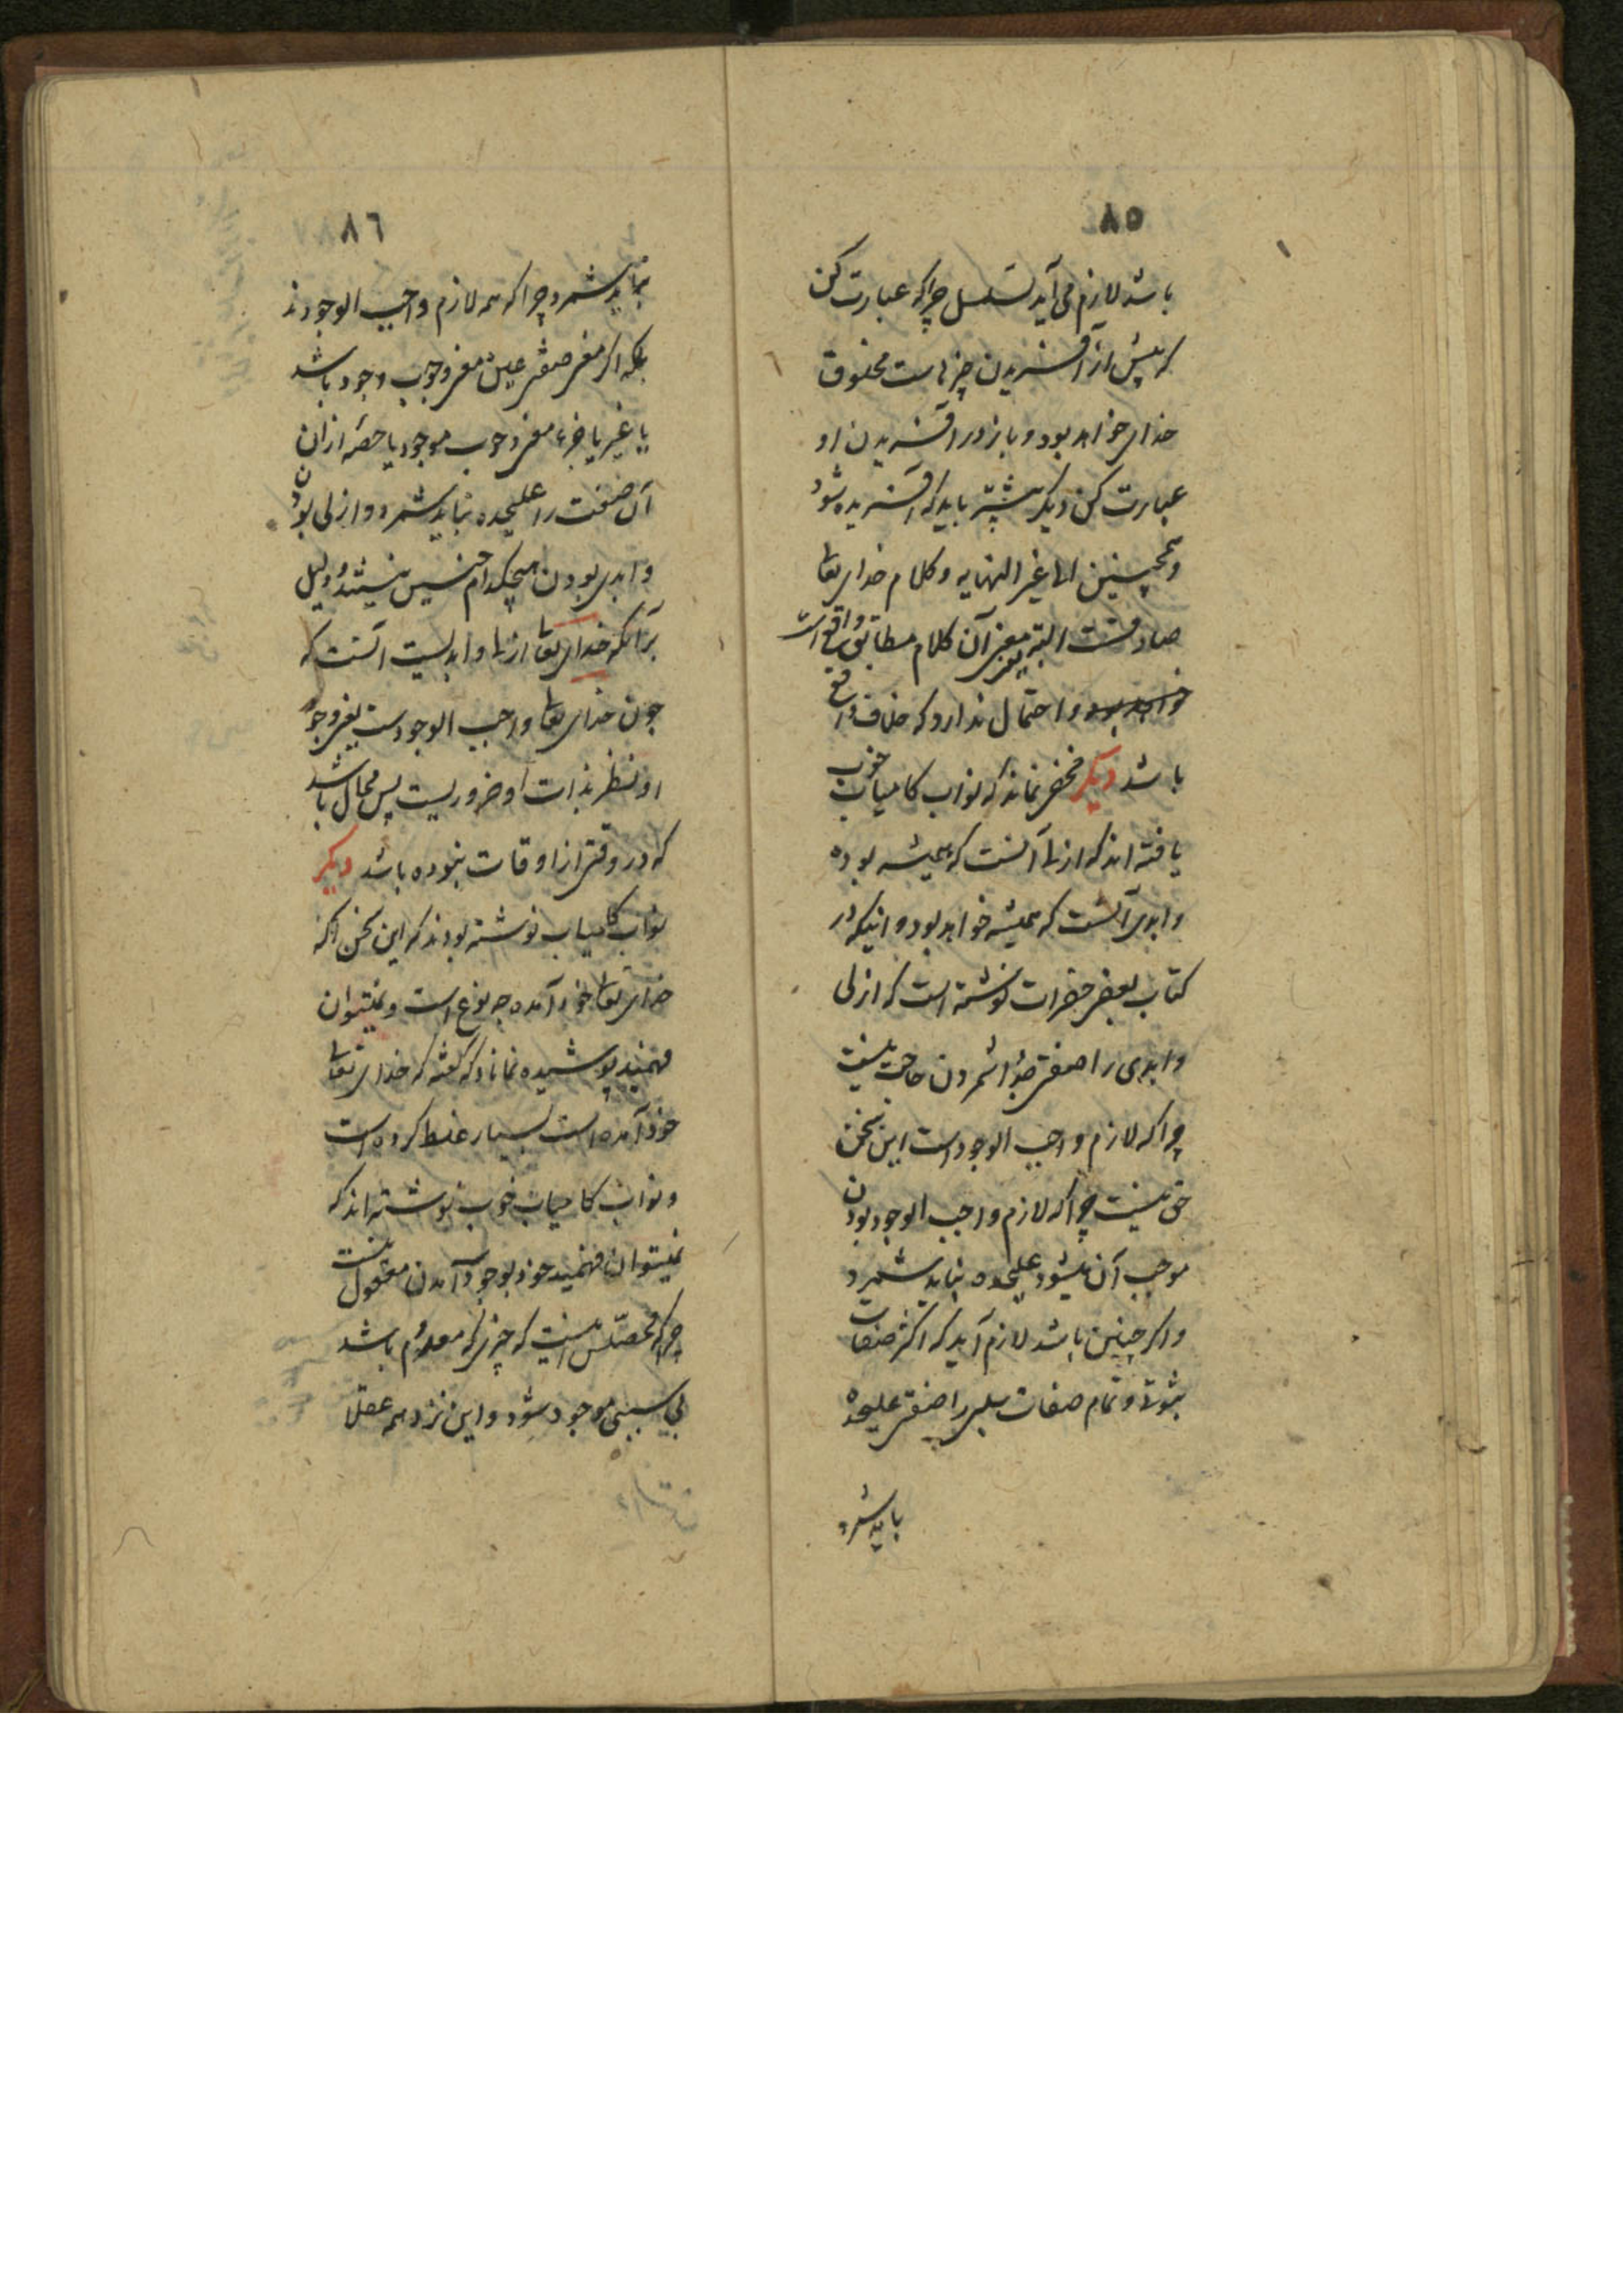 ۸۵
باشد لازم می‌آید تسلسل چراکه عبارت کن
که پیش از آفریدن چیزهاست مخلوق
خدای خواهد بود و باز در آفریدن او
عبارت کن دیگر پیشتر باید که آفریده شود
وهمچنین الی غیر النهایه وکلام خدای تعالی
صادقست البته معنی آن کلام مطابق واقع است
خواهد بود و احتمال ندارد که خلاف واقع
باشد دیگر مخفی نماند که نواب کامیاب خوب
یافته اند که ازلی آنست که همیشه بوده
وابدی آنست که همیشه خواهد بود و اینکه در
کتاب بعضی حضرات نوشته است که ازلی
وابدی را صفتی جدا شمردن حاجت نیست
چراکه لازم واجب الوجود است این سخن
حق نیست چراکه لازم واجب الوجود بودن
موجب آن نمیشود علیحده نباید شمرد
واگر چنین باشد لازم آید که اکثر صفات
ثبوتی و تمام صفات سلبی را صفتی علیحده
باید شمرد
۸۶
نباید شمرد چراکه همه لازم واجب الوجودند
بلکه اگر معنی صفتی عین معنی وجوب وجود باشد
یا غیر یا جزء معنی وجوب موجود یا حصه ازان
آن صفت را علیحده نباید شمرد و ازلی بودن
وابدی بودن هیچکدام چنین نیستند و دلیل
برآنکه خدای تعالی ازلی وابدیست آنست که
چون خدای تعالی واجب الوجودست یعنی وجود
او نظر بذات او ضروریست پس محال باشد
که در وقتی از اوقات نبوده باشد دیگر
نواب کامیاب نوشته بودند که این سخن آنکه
خدای تعالی خود آمده چه نوع است و نمیتوان
فهمید پوشیده نماناد که گفته که خدای تعالی
خود آمده است بسیار غلط کرده است
ونواب کامیاب خوب نوشته اند که
نمیتوان فهمید خود بوجود آمدن معقول نیست
چراکه محصّلش اینست که چیزی که معدوم باشد
بی سببی موجود شود و این نزد همه عقلا